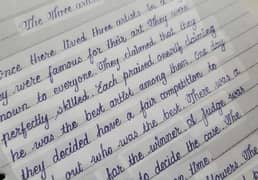 The Three artis
Once there lived three artists in a
y were famous for their art. They were
nown to everyone. They claimed that they
perfectly skilled. Each praised oneself claiming
he was the best artist among them. One day
they decided have a fair competition to
out who was the best. There was a
for the winner. A judge was
to decide the case. The
time.
flowers. The